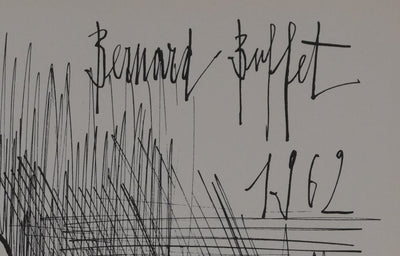 Bernard Buffet
1962